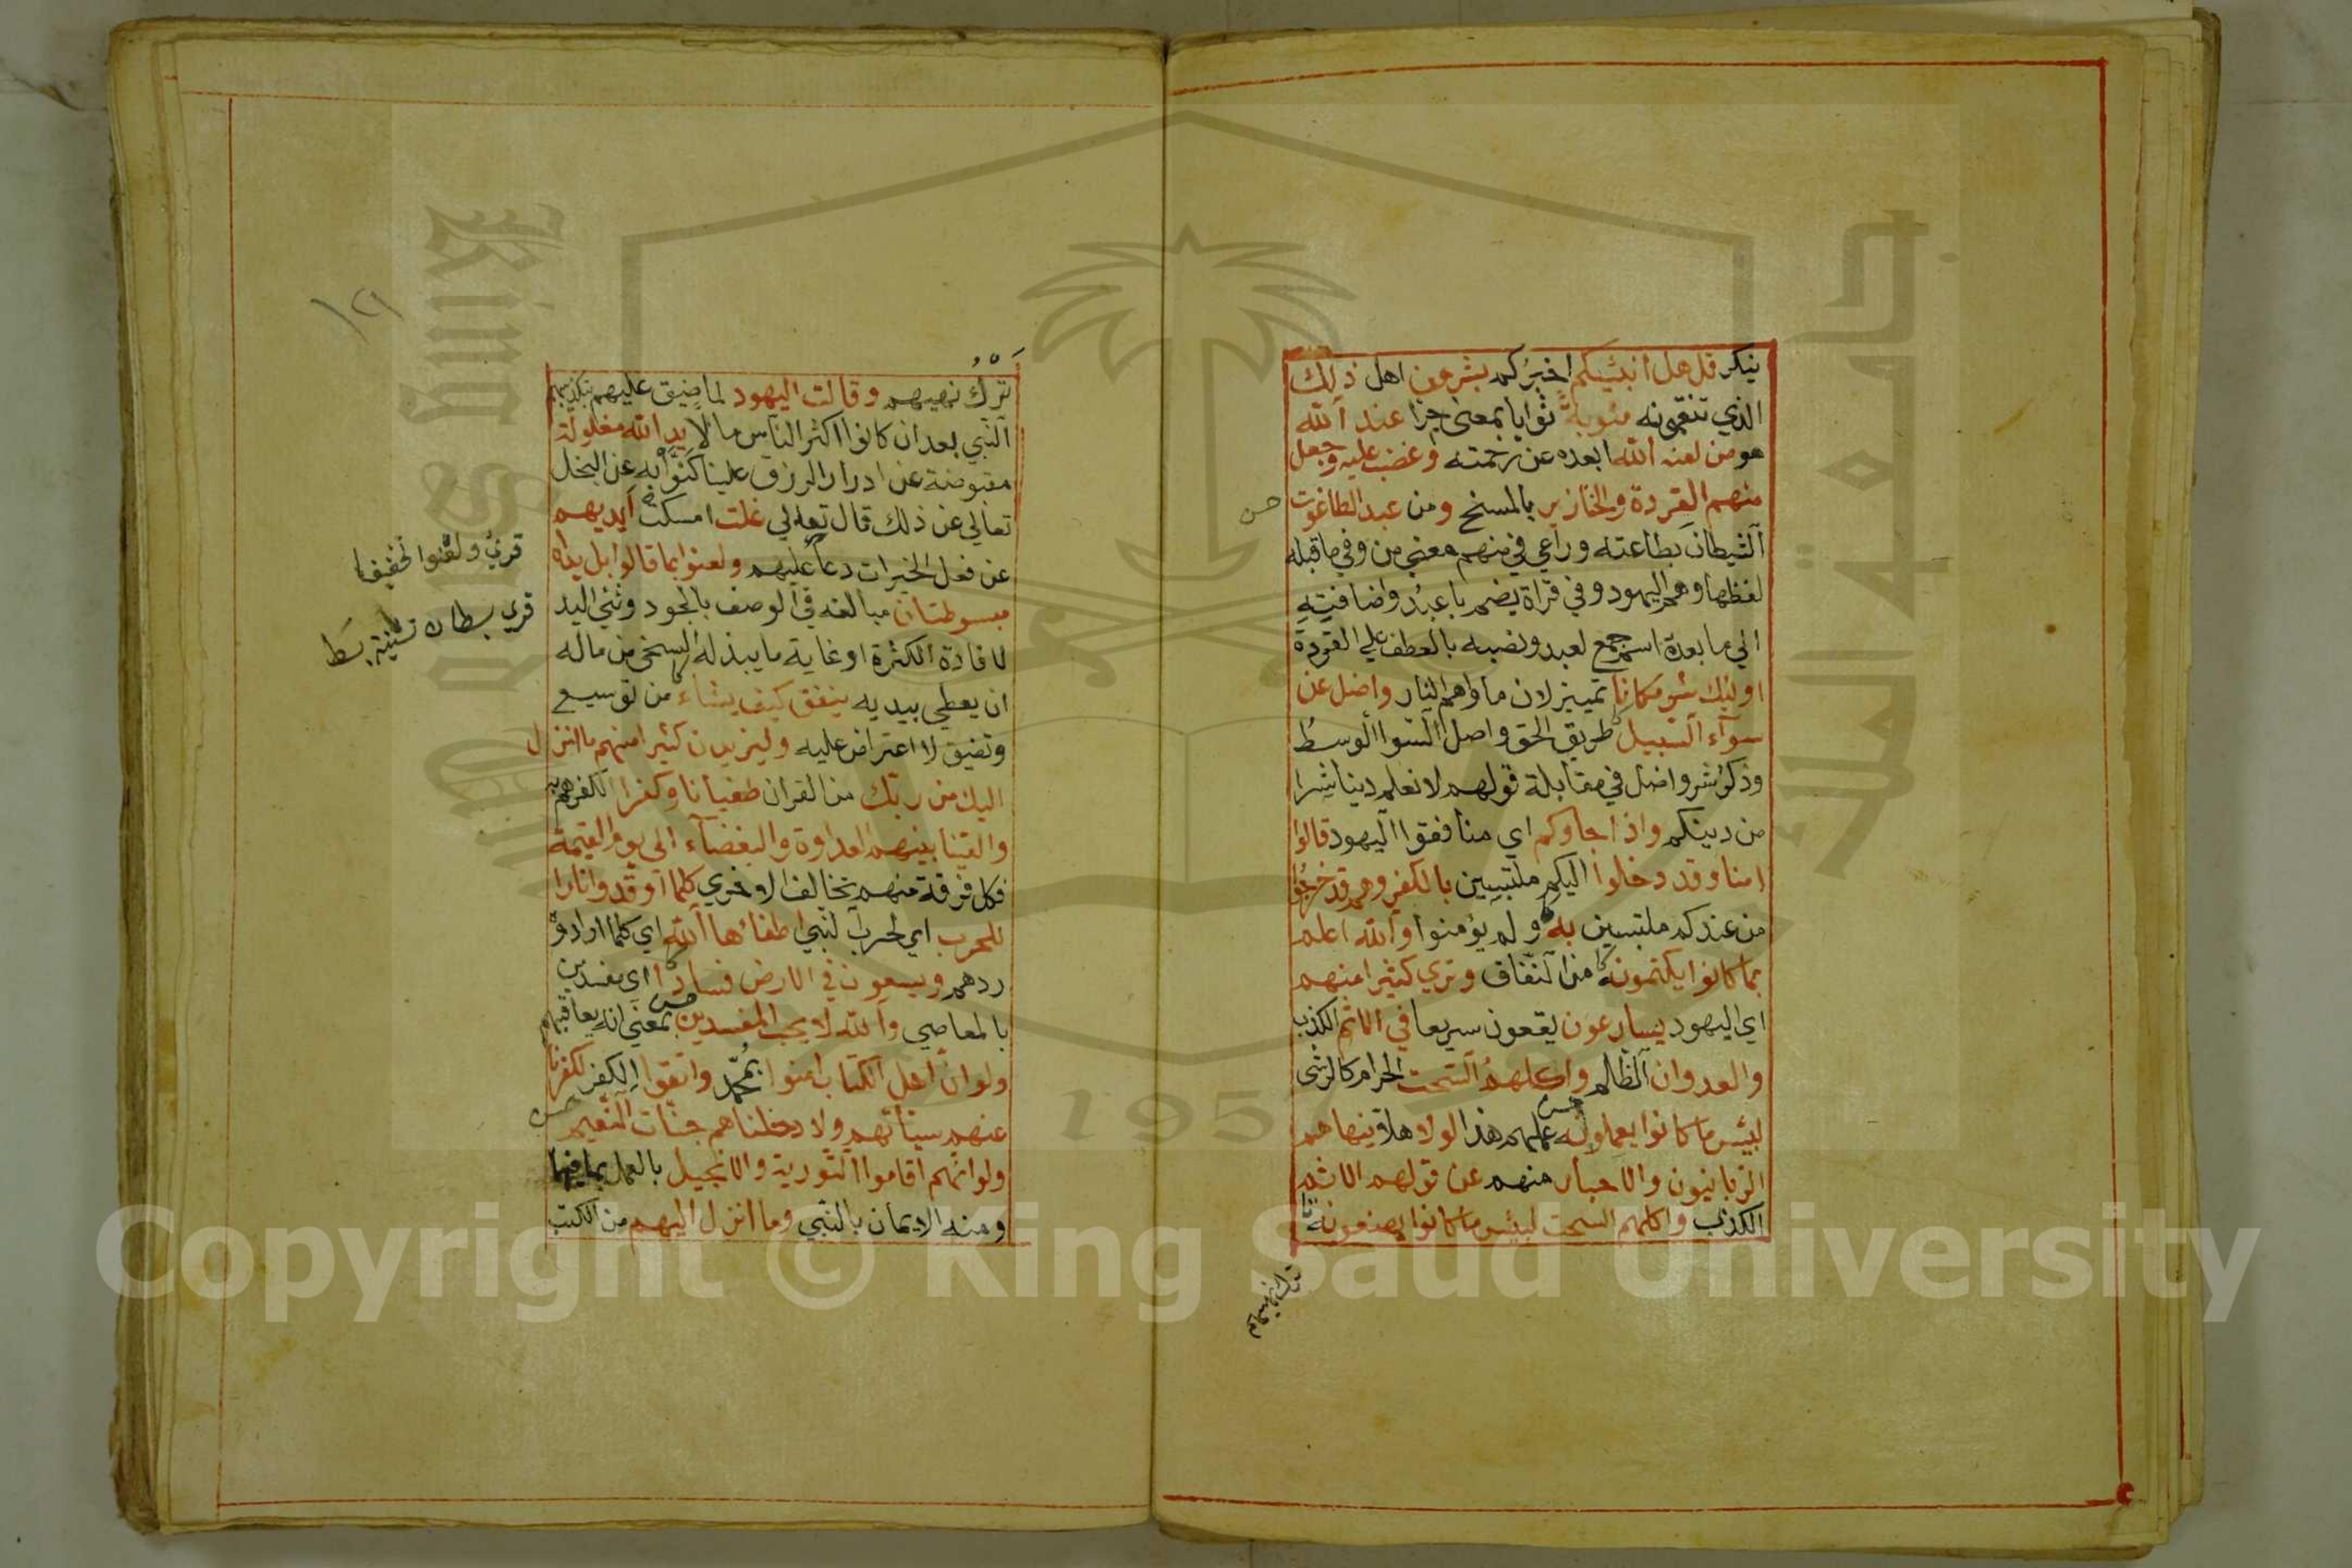 ينكر قل هل انبئكم اخبركم بشر من اهل ذلك
الذي تنقمونه مثوبة ثوابا بمعنى جزا عند الله
هو من لعنه الله ابعده عن رحمته وغضب عليه وجعل
منهم القردة والخنازير بالمسخ ومن عبد الطاغوت
الشيطان بطاعته وراعي في منهم معني من وفي ما قبله
لفظها وهم اليهود وفي قراة بضم با عبد واضافته
الي ما بعده اسم جمع لعبد ونصبه بالعطف علي القردة
اولئك شر مكانا تمييز لان ماواهم النار واضل عن
سوآء السبيل طريق الحق واصل السوا الوسط
وذكر شر واضل في مقابلة قولهم لا نعلم دينا شرا
من دينكم واذا جاوكم اي منافقوا اليهود قالوا
امنا وقد دخلوا اليكم ملتبسين بالكفر وهم قد خرجوا
من عندكم ملتبسين به ولم يؤمنوا والله اعلم
بما كانوا يكتمونه من النفاق وتري كثيرا منهم
اي اليهود يسارعون يقعون سريعا في الاثم الكذب
والعدوان الظلم واكلهم السحت الحرام كالرشى
لبئس ما كانوا يعملونه عملهم هذا لولا هلا ينهاهم
الربانيون والاحبار منهم عن قولهم الاثم
الكذب واكلهم السحت لبئس ما كانوا يصنعونه
ترك نهيهم وقالت اليهود لما ضيق عليهم بتكذيبهم
النبي بعد ان كانوا اكثر الناس مالا يد الله مغلولة
مقبوضة عن ادرار الرزق علينا كنوا به عن البخل
تعالي عن ذلك قال تعالي غلت امسكت ايديهم
عن فعل الخيرات دعا عليهم ولعنوا بما قالوا بل يداه
مبسوطتان مبالغه في الوصف بالجود وثني اليد
لافادة الكثرة اذ غاية ما يبذله السخي من ماله
ان يعطي بيديه ينفق كيف يشاء من توسيع
وتضيق لا اعتراض عليه وليزيدن كثيرا منهم ما انزل
اليك من ربك من القران طغيانا وكفرا لكفرهم به
والقينا بينهم العداوة والبغضآء الى يوم القيمة
فكل فرقة منهم تخالف الاخري كلما اوقدوا نارا
للحرب اي لحرب النبي اطفائها الله اي كلما ارادوه
ردهم ويسعون في الارض فسادا اي مفسدين
بالمعاصي والله لا يحب المفسدين بمعني انه يعاقبهم
ولو ان اهل الكتاب امنوا بمحمد واتقوا الكفر لكفرنا
عنهم سيئاتهم ولادخلناهم جنات النعيم
ولو انهم اقاموا التورية والانجيل بالعمل بما فيهما
ومنه الايمان بالنبي وما انزل اليهم من الكتب
قري ولعنوا تخفيفا
قري بسطان تثنية بسط
١٢١
King Saud University
جامعة الملك سعود
1957
Copyright © King Saud University